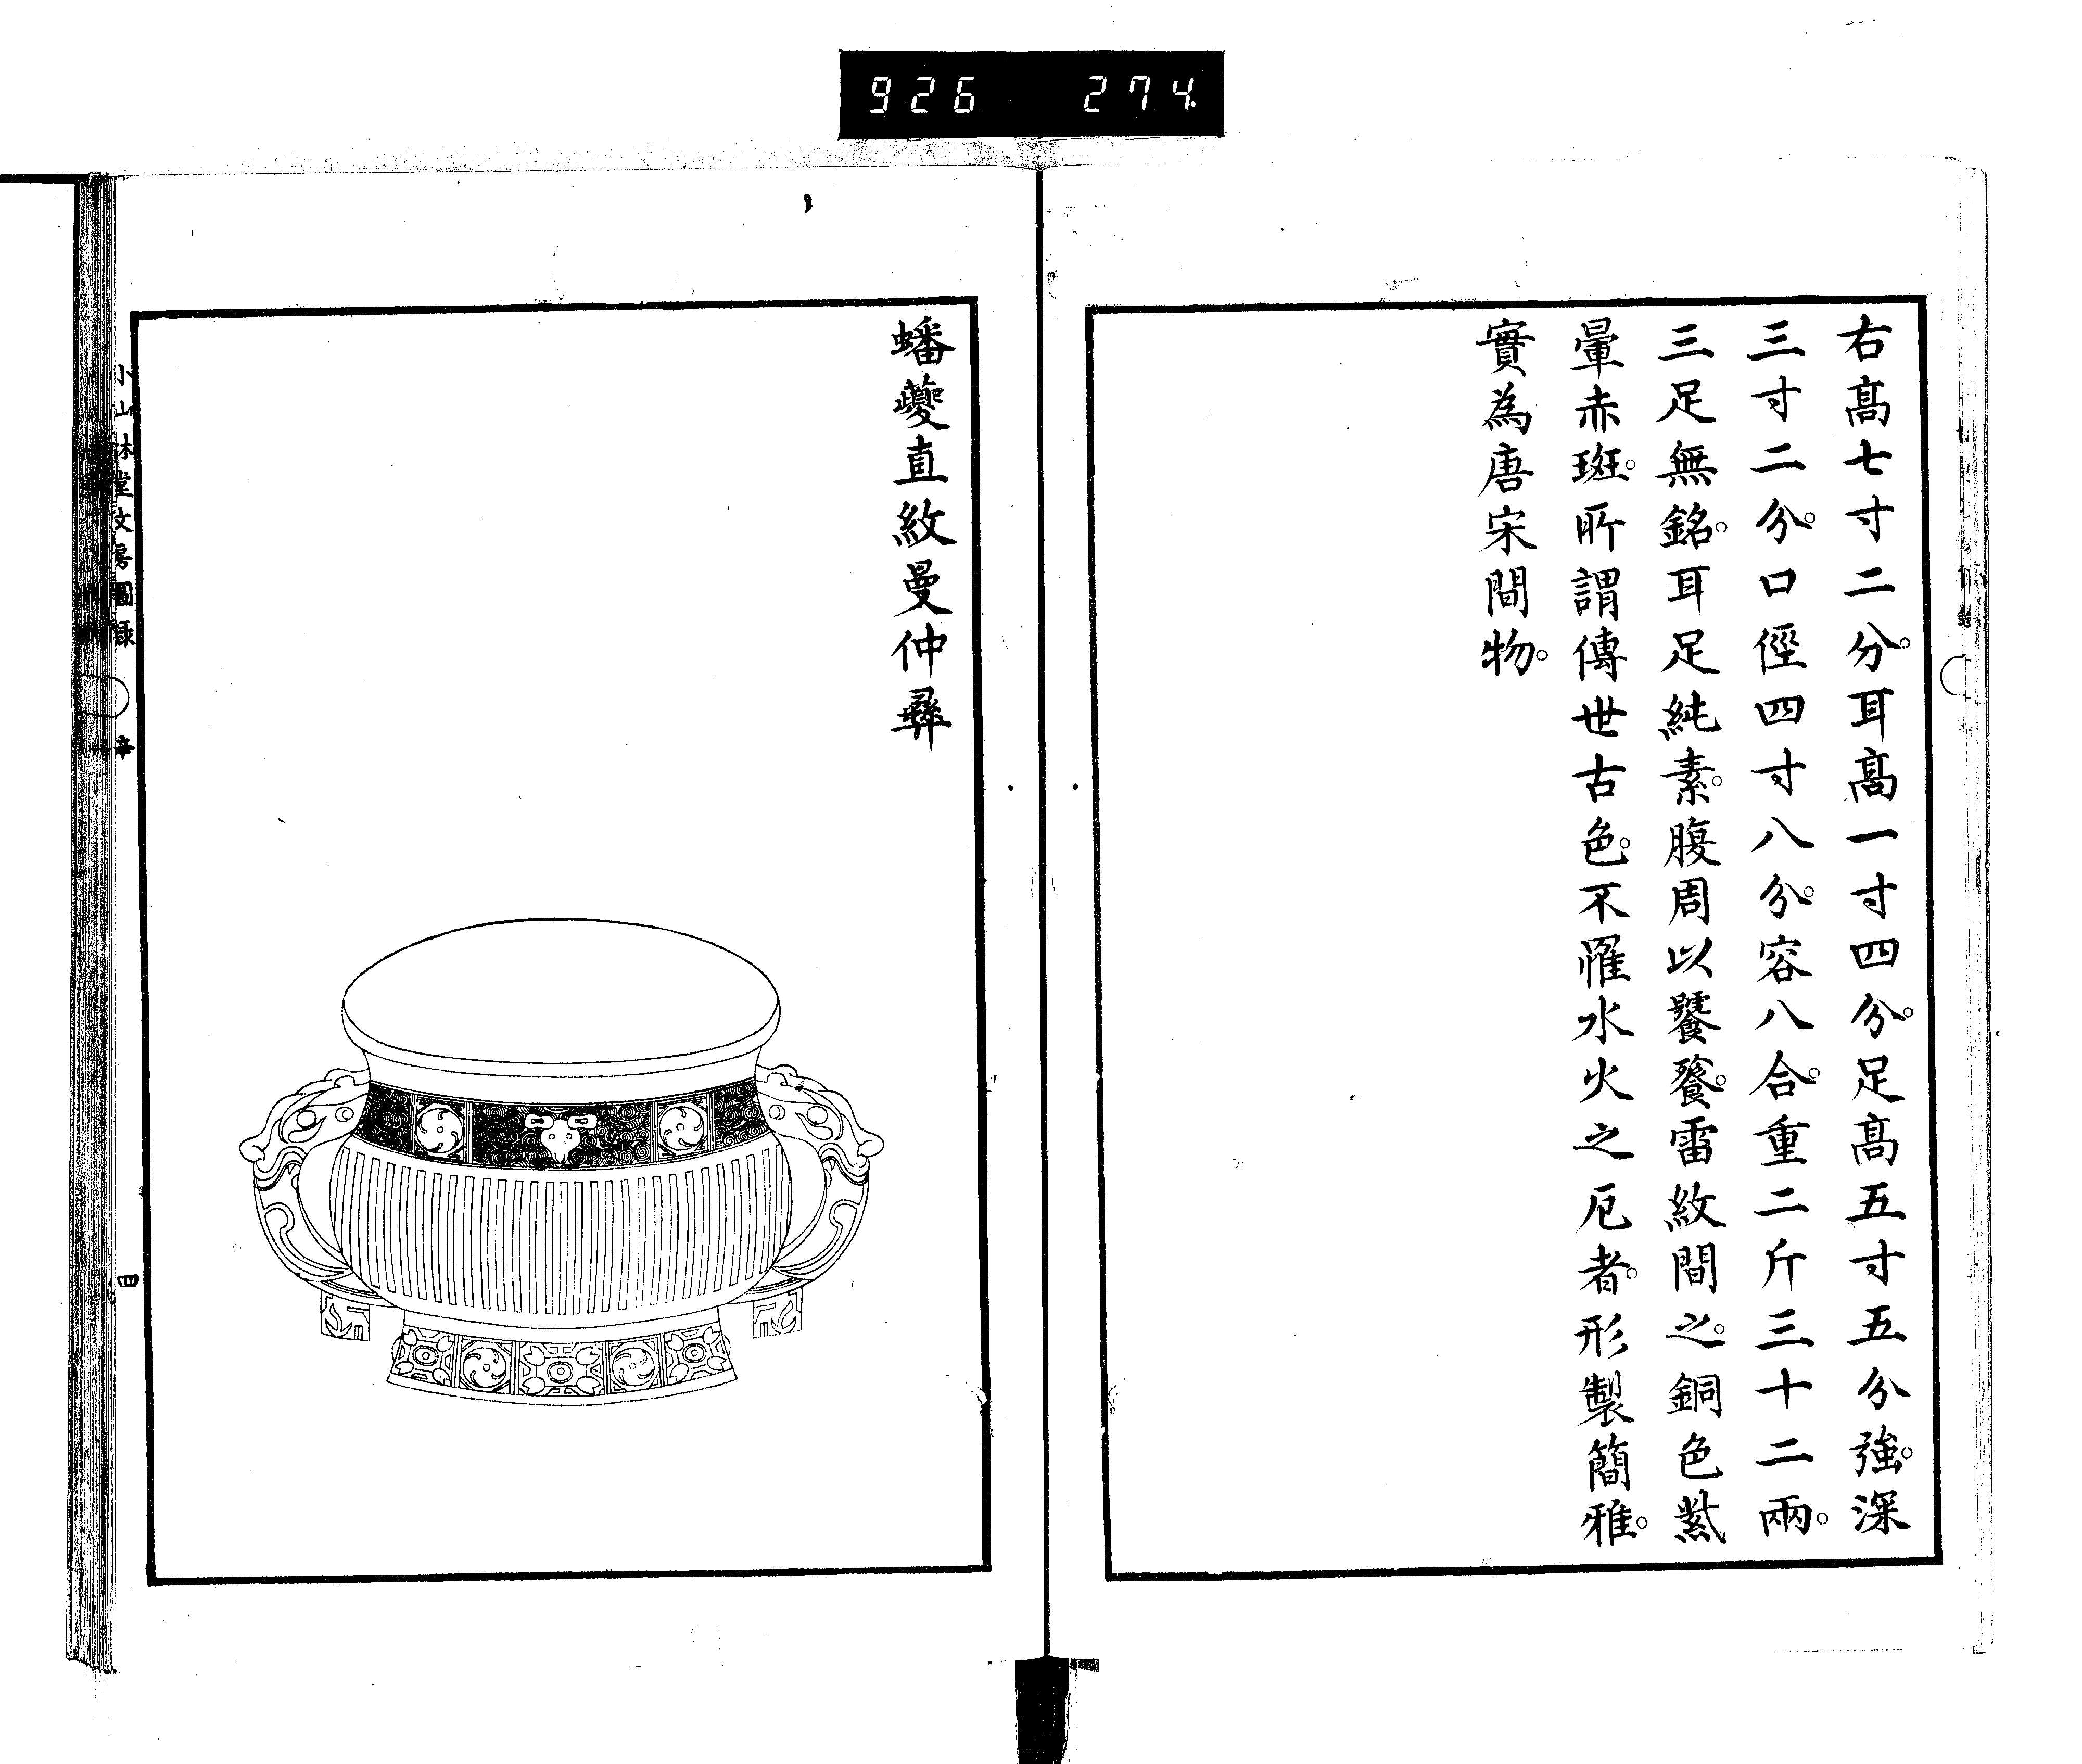 926 274
右高七寸二分。耳高一寸四分。足高五寸五分強。深
三寸二分。口徑四寸八分。容八合。重二斤三十二兩。
三足無銘。耳足純素。腹周以饕餮。雷紋間之。銅色紫
暈赤斑。所謂傳世古色。不罹水火之厄者。形製簡雅。
實為唐宋間物。
蟠夔直紋曼仲彝
小山林堂文房圖録 辛 四